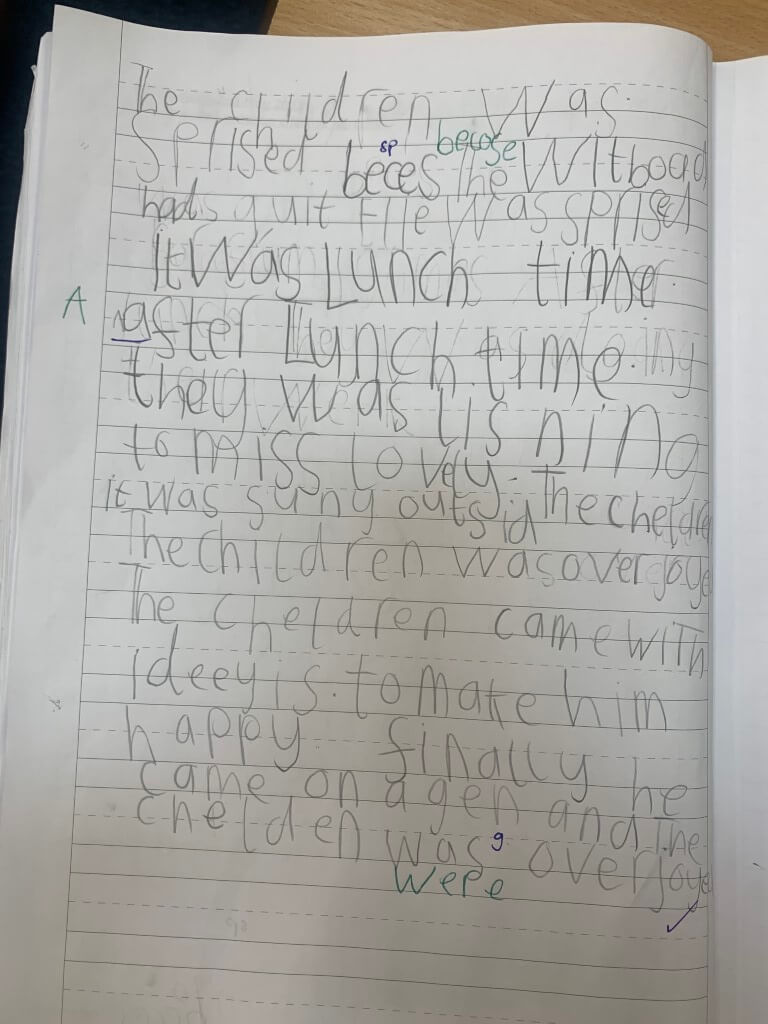 The children was.
Sprised beces the Witboad
sp becose
hads quit He was sprised
it was Lunch time.
A
after Lunch time.
they was lisning
to miss lovely. The cheldre
it was suny outsid
The children was overjoye
The cheldren came with
ideeyis. to make him
happy finally he
came on agen and The
chelden was overjoye
g
were